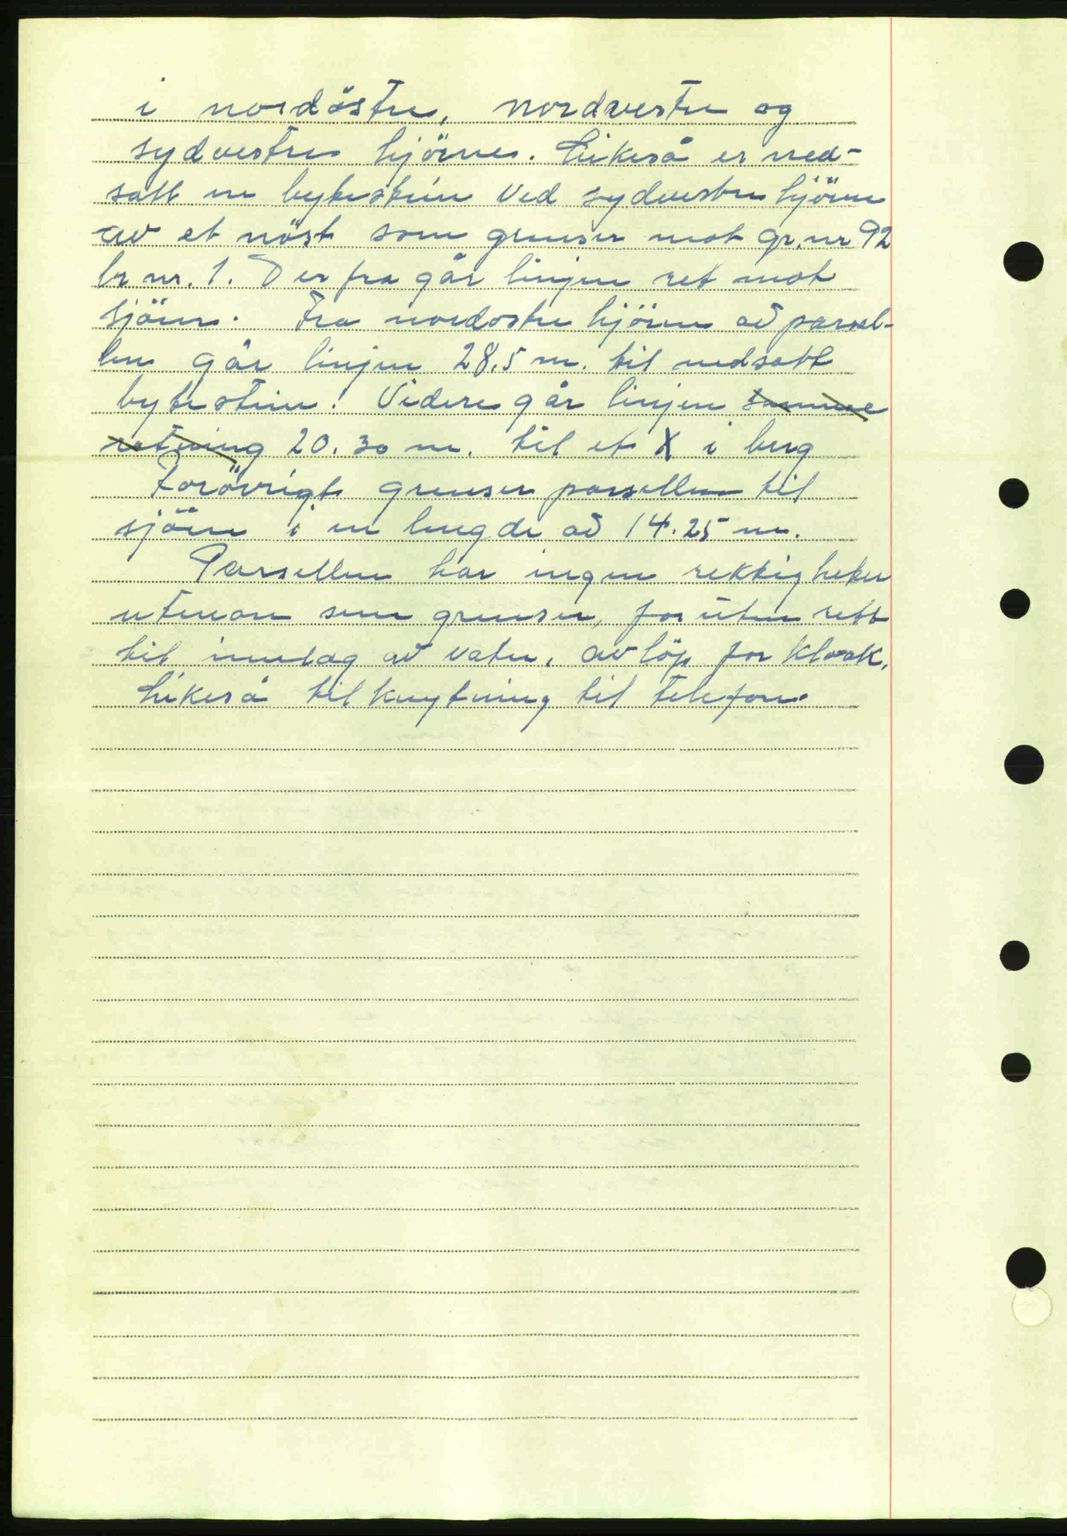 i nordöstre, nordvestre og
sydvestre hjörne. Likeså er ned-
satt en bytestein ved sydvestre hjörne
av et nöst som grenser mot gr.nr 92
br nr. 1. Der fra går linjen ret mot
sjöen. Fra nordostre hjörne av parsel-
len går linjen 28,5 m. til nedsatt
bytestein. Videre går linjen samme
retning 20.30 m. til et X i berg
Forövrigt grenser parsellen til
sjöen i en lengde av 14.25 m.
Parsellen har ingen rettigheter
utenom sem grenser, foruten rett
til inntag av vatn, avlöp for kloak,
Likeså tilknytning til telefon.